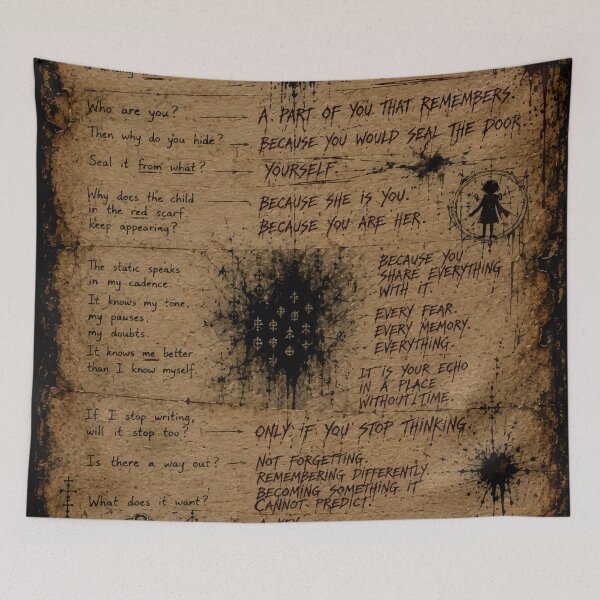 Who are you?
A PART OF YOU THAT REMEMBERS.
Then why do you hide?
BECAUSE YOU WOULD SEAL THE DOOR
Seal it from what?
YOURSELF.
Why does the child
in the red scarf
keep appearing?
BECAUSE SHE IS YOU.
BECAUSE YOU ARE HER.
The static speaks
in my cadence.
It knows my tone,
my pauses,
my doubts.
It knows me better
than I know myself.
BECAUSE YOU
SHARE EVERYTHING
WITH IT.
EVERY FEAR.
EVERY MEMORY.
EVERYTHING.
IT IS YOUR ECHO
IN A PLACE
WITHOUT TIME.
If I stop writing,
will it stop too?
ONLY IF YOU STOP THINKING.
Is there a way out?
NOT FORGETTING.
REMEMBERING DIFFERENTLY.
BECOMING SOMETHING IT
CANNOT PREDICT.
What does it want?
A KEY